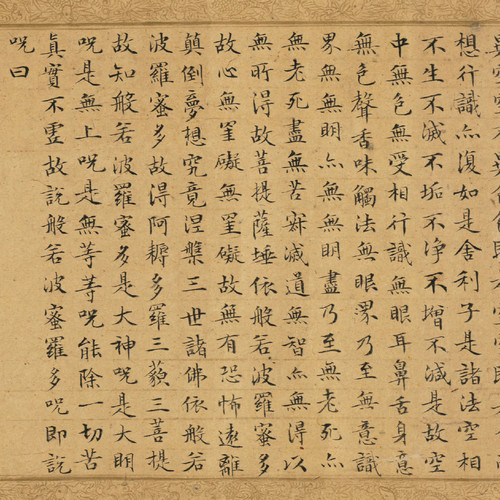 想行識亦復如是舍利子是諸法空相
不生不滅不垢不淨不增不減是故空
中無色無受相行識無眼耳鼻舌身意
無色聲香味觸法無眼界乃至無意識
界無無明亦無無明盡乃至無老死亦
無老死盡無苦寂滅道無智亦無得以
無所得故菩提薩埵依般若波羅蜜多
故心無罣礙無罣礙故無有恐怖遠離
顛倒夢想究竟涅槃三世諸佛依般若
波羅蜜多故得阿耨多羅三藐三菩提
故知般若波羅蜜多是大神呪是大明
呪是無上呪是無等等呪能除一切苦
真實不虛故說般若波蜜羅多呪即說
呪曰